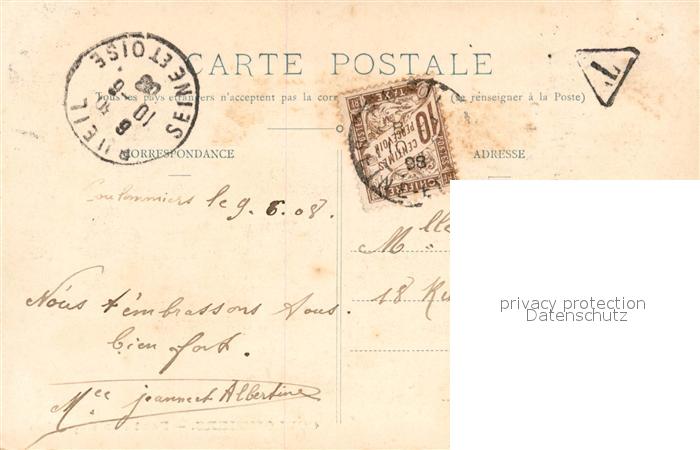 CARTE POSTALE
Tous les pays étrangers n'acceptent pas la corr (Se renseigner à la Poste)
CORRESPONDANCE
ADRESSE
RUEIL
SEINE ET OISE
6
10 6
08
T
10
CENTIMES
A PERCEVOIR
TAXE
CHIFFRE
Coulommiers le 9. 6. 08.
Nous t'embrassons tous
bien fort.
Mce jeanne et Albertine
Mlle
18 Ru
privacy protection
Datenschutz